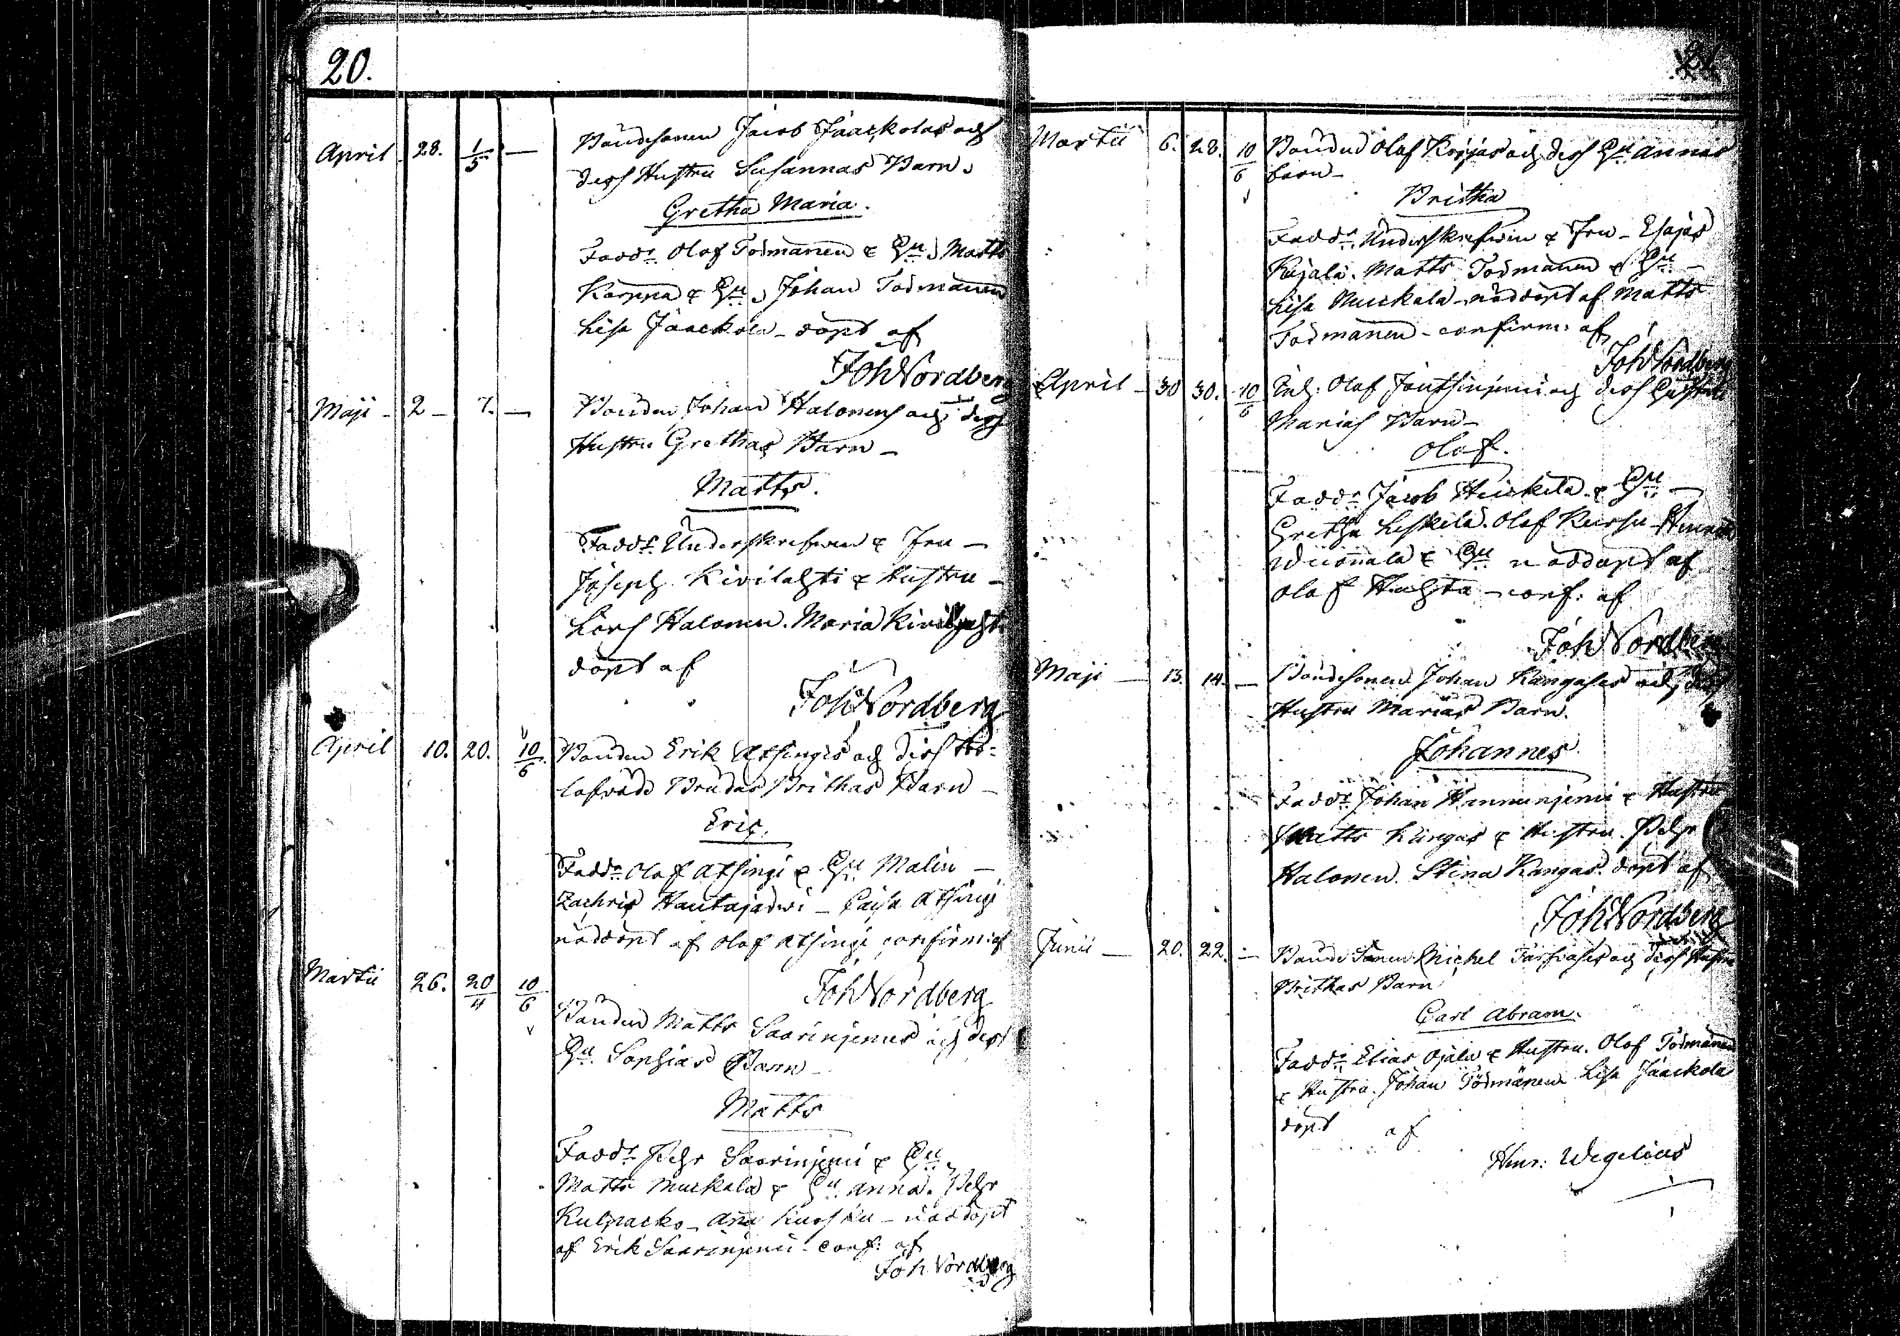 20.
April 28. 1/5 — Bondesonen Jacob Jaackolas och
dess Hustru Susannas Barn,
Gretha Maria.
Fadd: Olof Todmanen & Hu, Matts
Karppa & Hu, Johan Todmanen
Lisa Jaackola - döpt af
Joh Nordberg
Maji - 2 - 7. — Bonden Johan Halonens och dess
Hustru Grethas Barn -
Matts.
Fadd: Underskrefven & Fru -
Joseph Kivilahti & Hustru -
Lars Halonen. Maria Kivilahti
döpt af
Joh Nordberg
April 10. 20. 10/6 Bonden Erik Atsingis och dess
lofvade Brudas Brithas Barn -
Eric.
Fadd: Olof Atsingi & Hu Malin -
Zachris Hautajärvi - Caisa Atsingi
nöddöpt af Olof Atsingi, confirm: af
Joh Nordberg
Martii 26. 20/4 10/6 Bonden Matts Saarinjemis och dess
Hu Sophias Barn -
Matts
Fadd: Pehr Saarinjemi & Hu,
Matts Murkala & Hu Anna. Pehr
Kulpacko - Anna Kursu - nöddöpt
af Erik Saarinjemi - conf: af
Joh Nordberg
21
Martii 6. 28. 10/6 Bonden Olof Korjas och dess Hu Annas
barn -
Britha
Fadd: Underskrefven & Fru - Esajas
Kujala. Matts Todmanen & Hu -
Lisa Murkala - nöddöpt af Matts
Todmanen - confirm: af
Joh Nordberg
April - 30 30. 10/6 Inh: Olof och dess Hustru
Marias Barn -
Olof.
Fadd: Jacob Heickila & Hu -
Gretha Leskelä. Olof Kursu - Henric
& Hu nöddöpt af
Olof Huhta - conf: af
Joh Nordberg
Maji — 13. 14. — Bondesonen Johan Kangases och dess
Hustru Marias Barn.
Johannes
Fadd: Johan Hannunjemi & Hustru
Matts Kangas & Hustru. Pehr
Halonen. Stina Kangas. döpt af
Joh Nordberg
Junii — 20. 22. — Bonde Sonen Michel och dess Hustru
Brithas Barn
Carl Abram.
Fadd: Elias Ojala & Hustru. Olof Todmanen
& Hustru. Johan Todmanen Lisa Jaackola
döpt af
Henr: Wegelius